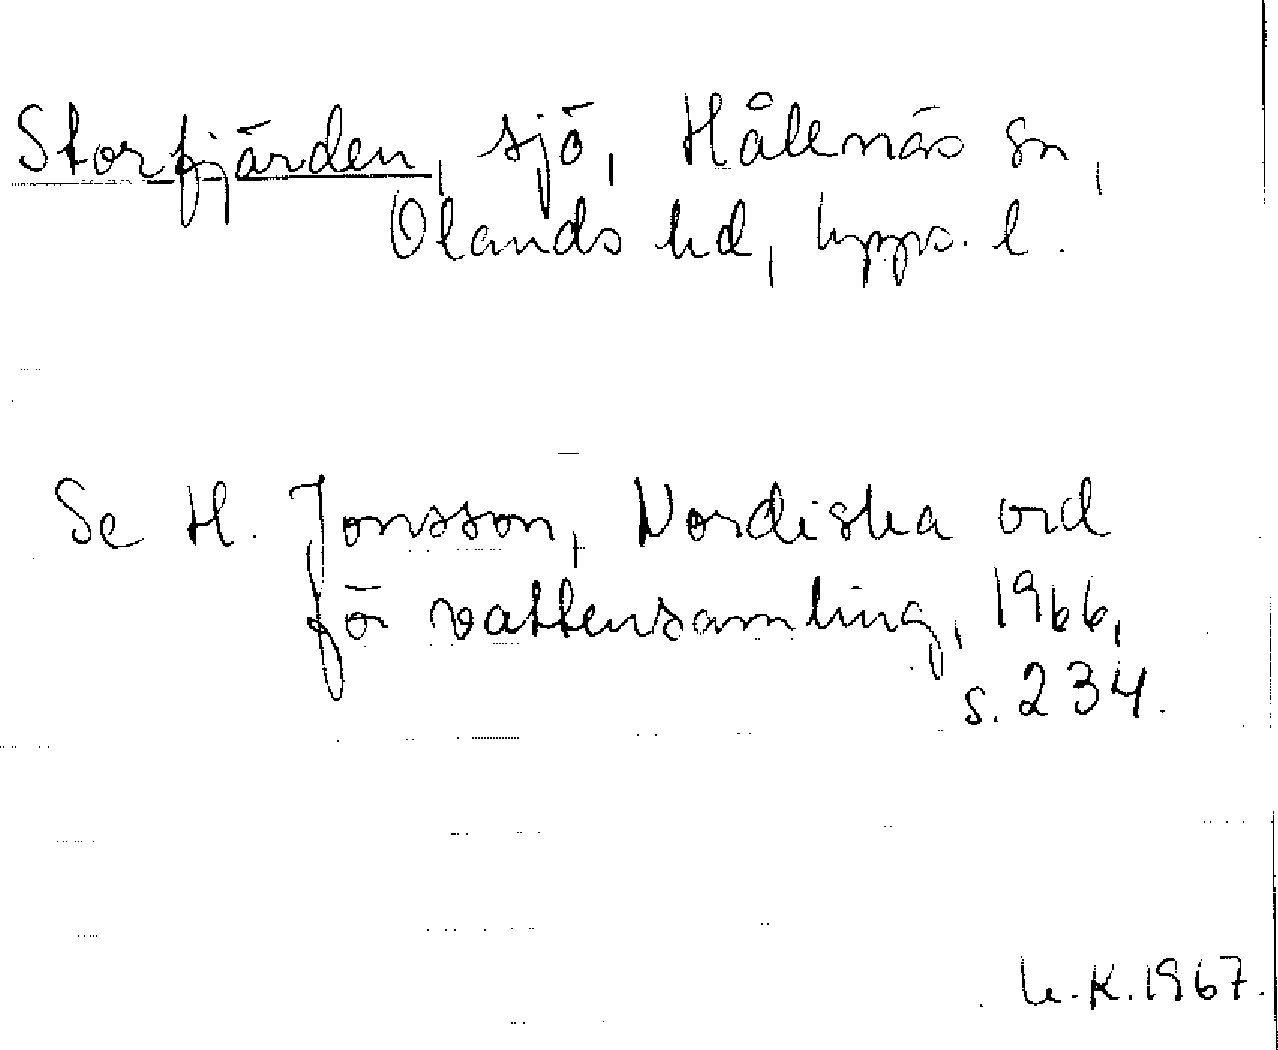 Storfjärden, sjö, Hållnäs sn,
Olands hd, Upps. l.
Se H. Jonsson, Nordiska ord
för vattensamling, 1966,
s. 234.
U.K. 1967.